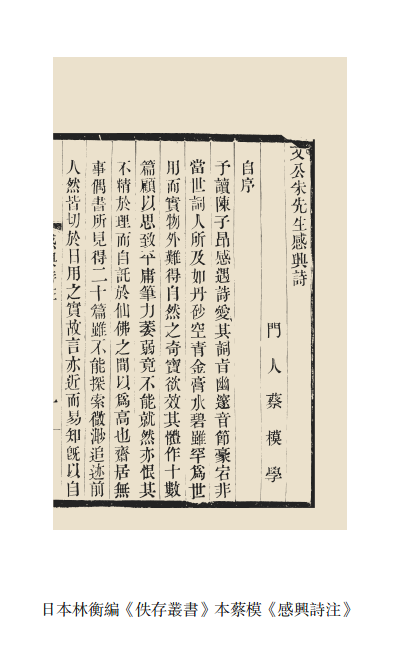 文公朱先生感興詩
門人蔡模學
自序
予讀陳子昂感遇詩愛其詞旨幽邃音節豪宕非
當世詞人所及如丹砂空青金膏水碧雖罕爲世
用而實物外難得自然之奇寶欲效其體作十數
篇顧以思致平庸筆力萎弱竟不能就然亦恨其
不精於理而自託於仙佛之間以爲高也齋居無
事偶書所見得二十篇雖不能探索微渺追迹前
人然皆切於日用之實故言亦近而易知旣以自
日本林衡編《佚存叢書》本蔡模《感興詩注》